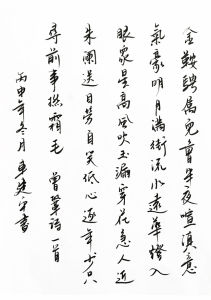 金鞍騁馬兒曹半夜喧闐意
氣豪明月滿街流水遠華燈入
眼衆星高風吹玉漏穿花急人近
朱闌送目勞自笑低心逐年少只
尋前事撚霜毛 曾鞏詩一首
丙申年冬月